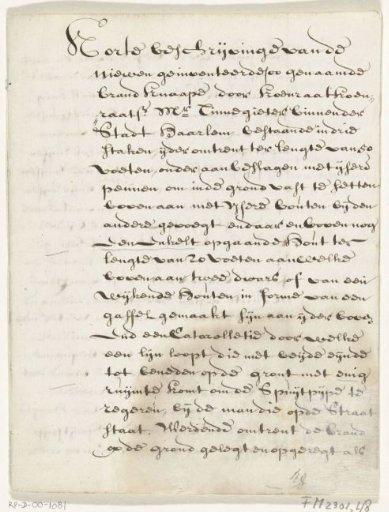 Korte beschrijvinge van de
nieuwen geinventeerde soo genaamde
brand knaape door Koenraat Koen-
raats Mr Tinnegieter binnen der
Stadt Haarlem bestaande in drie
staken yder omtrent ter lengte van 20
voeten, onder aan beslagen met ijsere
pennen om inde grond vast te setten
boven aan met ysere bouten by den
andere gevoegt en daar en boven nog
een enkelt opgaande hout ter
lengte van 20 voeten aan welke
boven aan twee dwars of van een
wijkende houten, in forme van een
gaffel gemaakt sijn aan yder boven
end een Catrolletie door welke
een lijn loopt die met beyde eynde
tot beneden op de gront met enig
ruijmte komt om de Spuytpijpe te
regeren, by de man die op de Straat
staat. Werdende omtrent de brand
op de grond gelegt en opgeregt als
RP-D-00-1081
FM2301,48